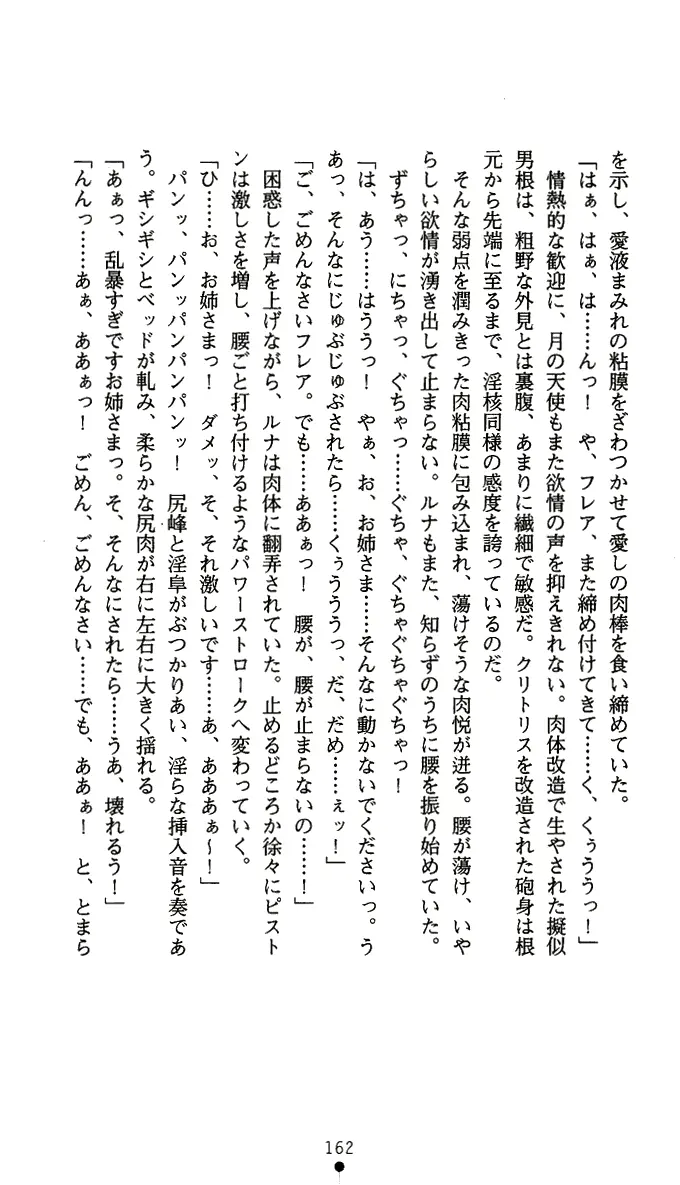 を示し、愛液まみれの粘膜をざわつかせて愛しの肉棒を食い締めていた。
「はぁ、はぁ、は……んっ！　や、フレア、また締め付けてきて……く、くぅううっ！」
情熱的な歓迎に、月の天使もまた欲情の声を抑えきれない。肉体改造で生やされた擬似
男根は、粗野な外見とは裏腹、あまりに繊細で敏感だ。クリトリスを改造された砲身は根
元から先端に至るまで、淫核同様の感度を誇っているのだ。
そんな弱点を潤みきった肉粘膜に包み込まれ、蕩けそうな肉悦が迸る。腰が蕩け、いや
らしい欲情が湧き出して止まらない。ルナもまた、知らずのうちに腰を振り始めていた。
ずちゃっ、にちゃっ、ぐちゃっ……ぐちゃ、ぐちゃぐちゃぐちゃっ！
「は、あう……はううっ！　やぁ、お、お姉さま……そんなに動かないでくださいっ。う
あっ、そんなにじゅぶじゅぶされたら……くぅううっ、だ、だめ……ぇッ！」
「ご、ごめんなさいフレア。でも……ああぁっ！　腰が、腰が止まらないの……！」
困惑した声を上げながら、ルナは肉体に翻弄されていた。止めるどころか徐々にピスト
ンは激しさを増し、腰ごと打ち付けるようなパワーストロークへ変わっていく。
「ひ……お、お姉さまっ！　ダメッ、そ、それ激しいです……あ、あああぁ～！」
パンッ、パンッパンパンパンッ！　尻峰と淫阜がぶつかりあい、淫らな挿入音を奏であ
う。ギシギシとベッドが軋み、柔らかな尻肉が右に左右に大きく揺れる。
「あぁっ、乱暴すぎですお姉さまっ。そ、そんなにされたら……うあ、壊れるう！」
「んんっ……あぁ、ああぁっ！　ごめん、ごめんなさい……でも、ああぁ！　と、とまら
162